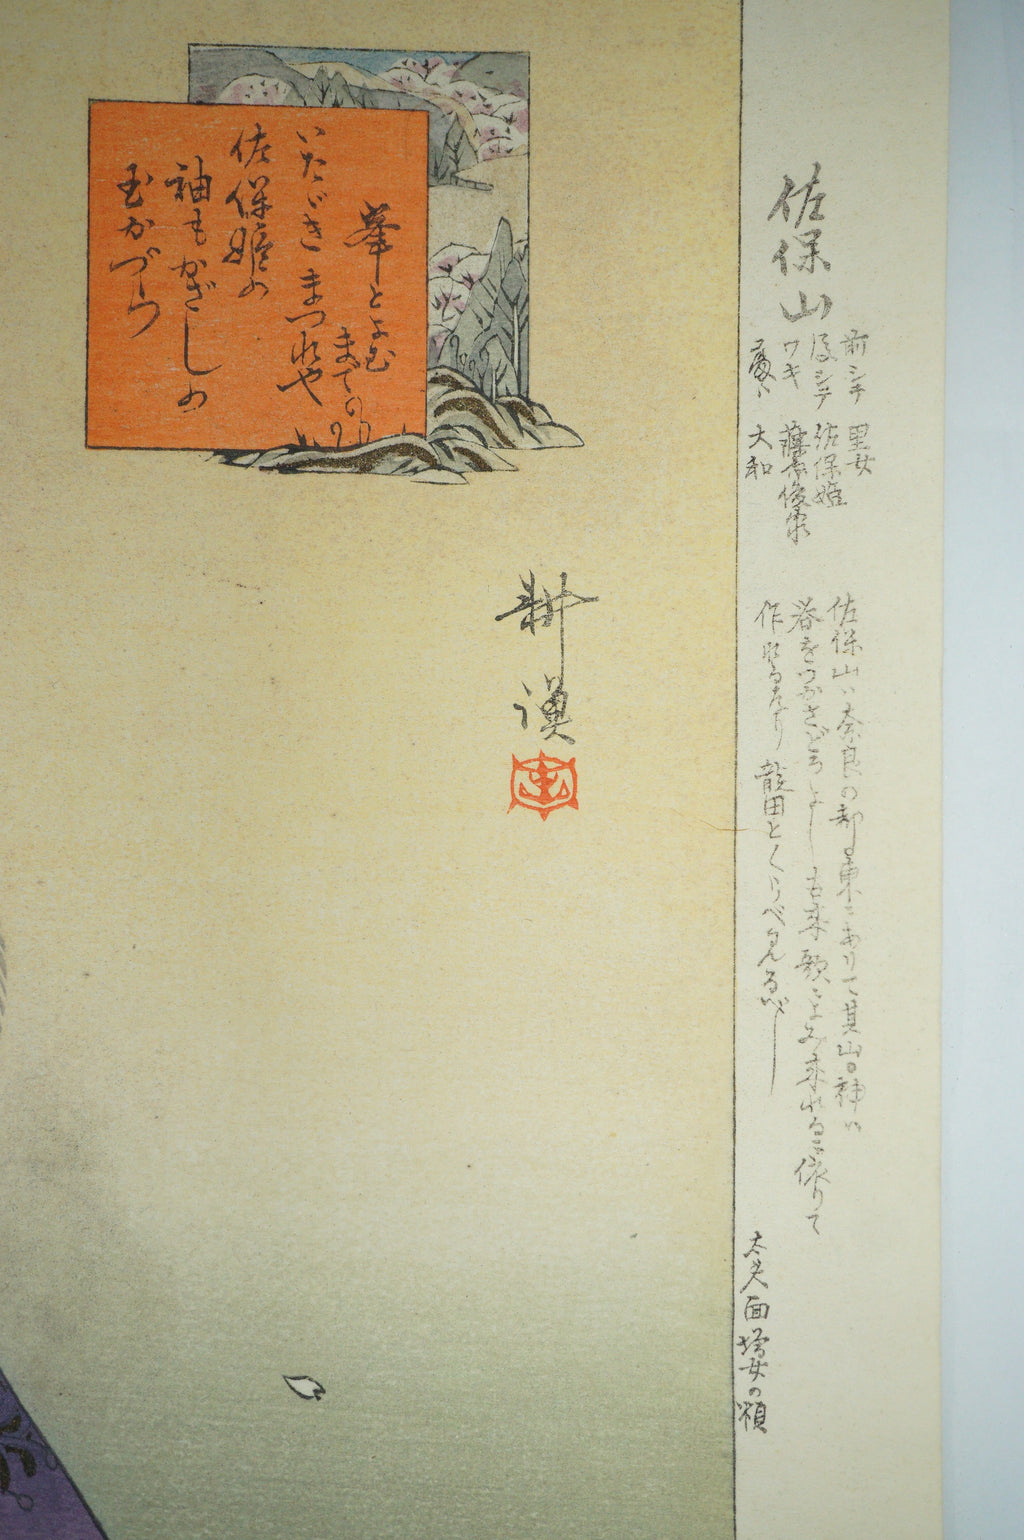 佐保山
前シテ 里女
後シテ 佐保姫
ワキ 藤原俊家
処ハ 大和
佐保山ハ奈良の都の東にありて其山の神ハ
春をつかさどるよしも古来歌によみ来れるに依りて
作せるなり 龍田とくらべ見るべし
太夫面増女の類
峯とよむまでの
いたゞきまつれや
佐保姫の
袖もかざしの
玉かづら
耕漁